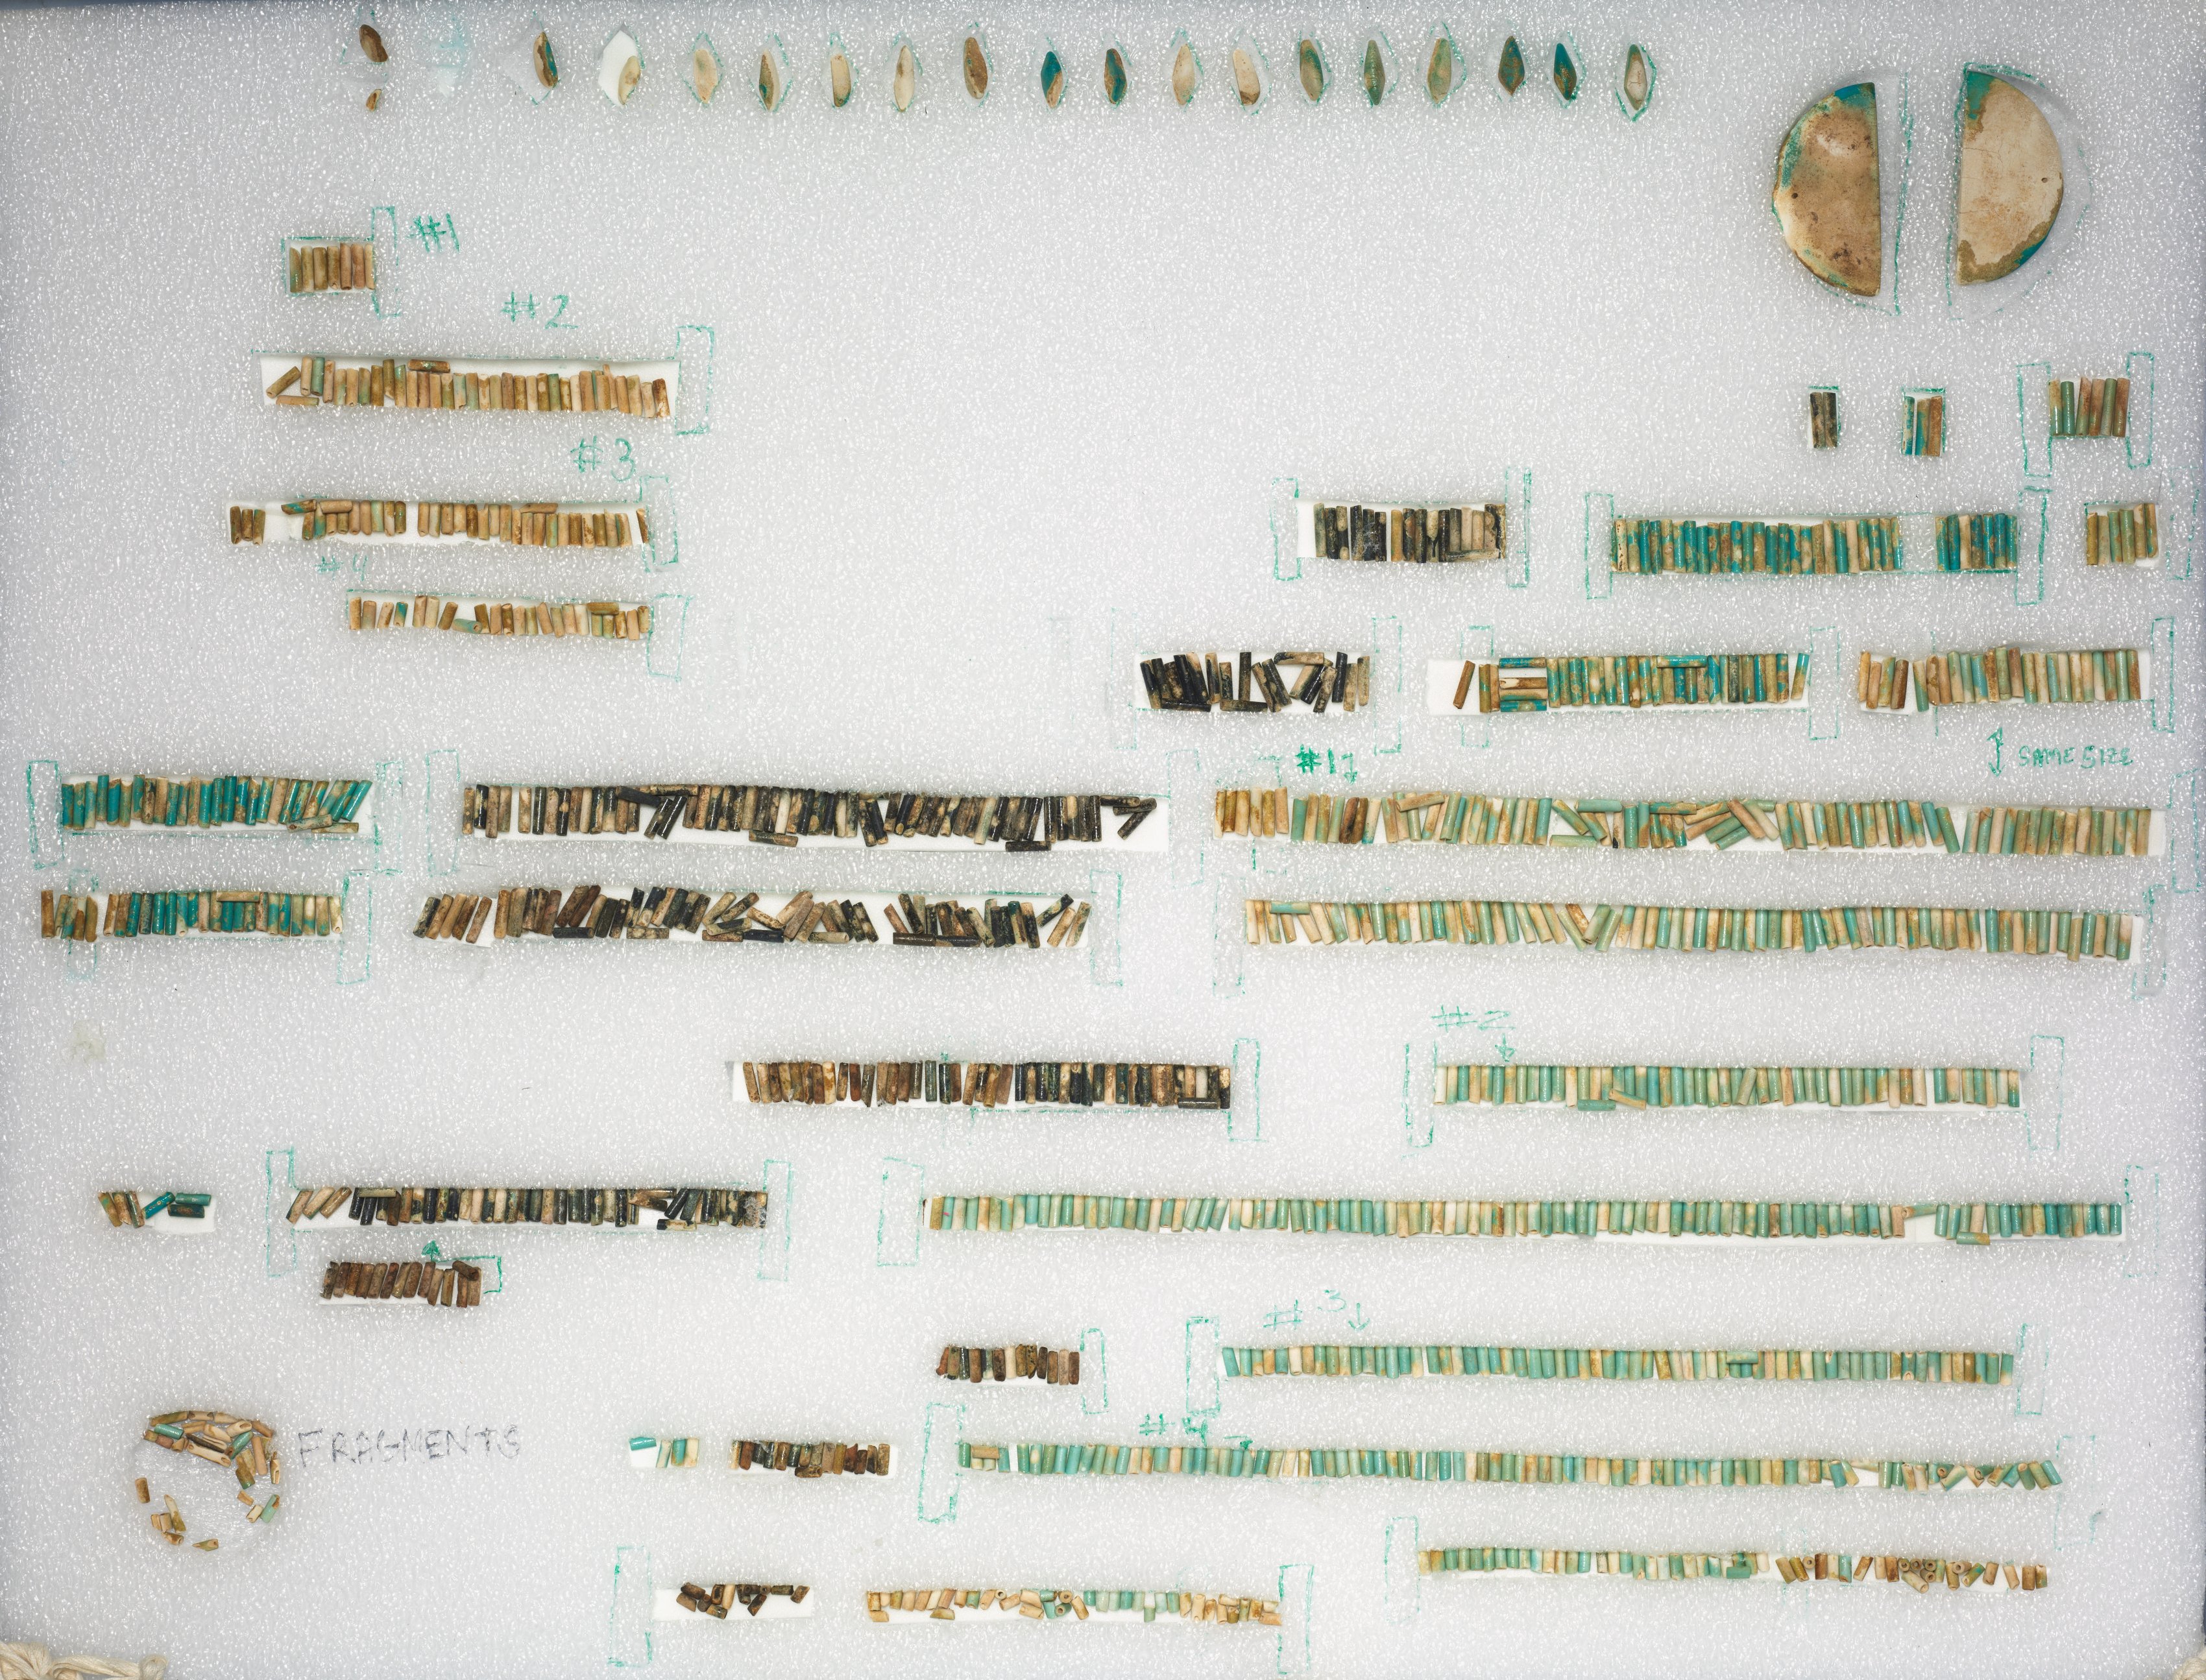 #1
#2
#3
#4
SAME SIZE
#1
#2
#3
FRAGMENTS
#4